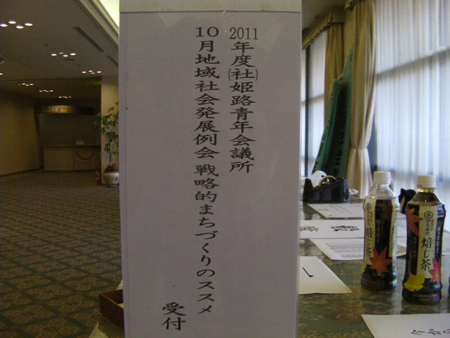 2011年度(社)姫路青年会議所
10月地域社会発展例会 戦略的まちづくりのススメ
受付
焙じ茶